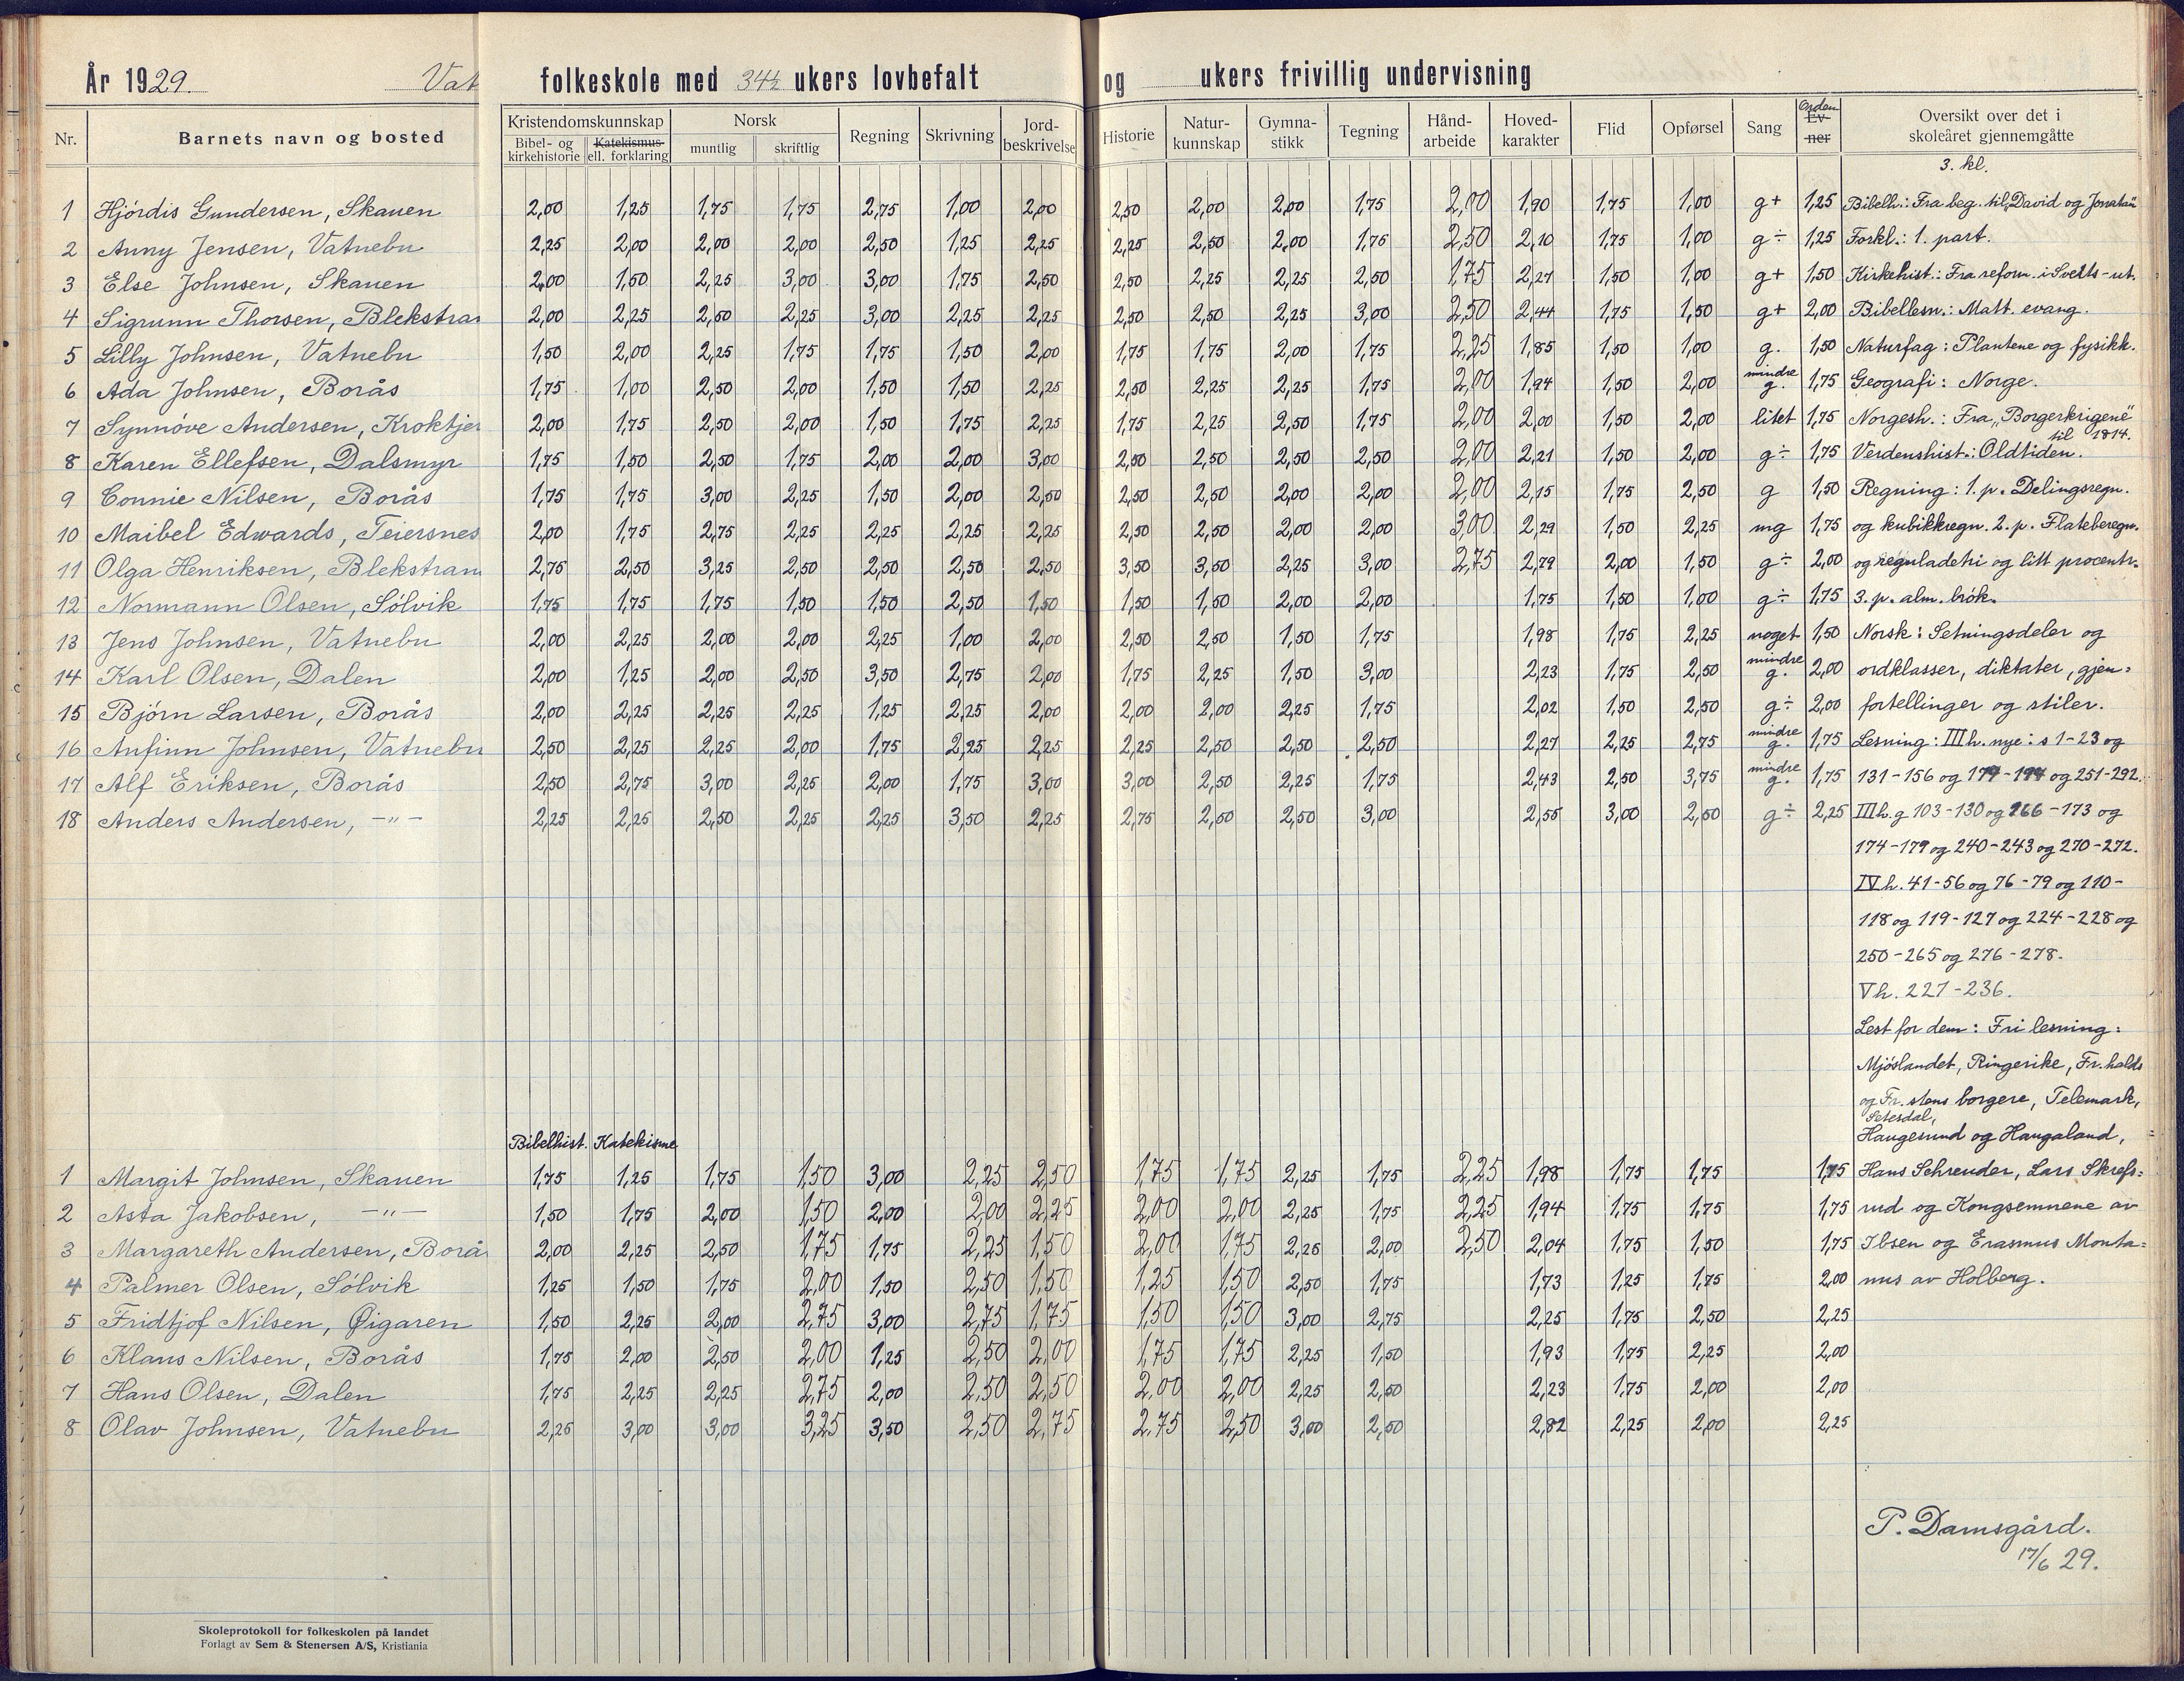 År 1929. Vat folkeskole med 34½ ukers lovbefalt og ukers frivillig undervisning
Nr. Barnets navn og bosted Kristendomskunnskap Bibel- og kirkehistorie Katekismus ell. forklaring Norsk muntlig skriftlig Regning Skrivning Jord-beskrivelse Historie Natur-kunnskap Gymna-stikk Tegning Hånd-arbeide Hoved-karakter Flid Opførsel Sang Orden Ev-ner Oversikt over det i skoleåret gjennemgåtte
3. kl.
1 Hjördis Gundersen, Skauen 2,00 1,25 1,75 1,75 2,75 1,00 2,00 2,50 2,00 2,00 1,75 2,00 1,90 1,75 1,00 g+ 1,25 Bibelh.: Fra beg. til „David og Jonatan"
2 Anny Jensen, Vatnebu 2,25 2,00 2,00 2,00 2,50 1,25 2,25 2,25 2,50 2,00 1,75 2,50 2,10 1,75 1,00 g÷ 1,25 Forkl.: 1. part.
3 Else Johnsen, Skauen 2,00 1,50 2,25 3,00 3,00 1,75 2,50 2,50 2,25 2,25 2,50 1,75 2,27 1,50 1,00 g+ 1,50 Kirkehist.: Fra reform. i Sveits - ut.
4 Sigrunn Thorsen, Blekstran 2,00 2,25 2,50 2,25 3,00 2,25 2,25 2,50 2,50 2,25 3,00 2,50 2,44 1,75 1,50 g+ 2,00 Bibellesn.: Matt. evang.
5 Lilly Johnsen, Vatnebu 1,50 2,00 2,25 1,75 1,75 1,50 2,00 1,75 1,75 2,00 1,75 2,25 1,85 1,50 1,00 g. 1,50 Naturfag: Plantene og fysikk.
6 Ada Johnsen, Borås 1,75 1,00 2,50 2,00 1,50 1,50 2,25 2,50 2,25 2,25 1,75 2,00 1,94 1,50 2,00 mindre g. 1,75 Geografi: Norge.
7 Synnöve Andersen, Kroktjer 2,00 1,75 2,50 2,00 1,50 1,75 2,25 1,75 2,25 2,50 1,75 2,00 2,00 1,50 2,00 litet 1,75 Norgesh.: Fra „Borgerkrigene" til 1814.
8 Karen Ellefsen, Dalsmyr 1,75 1,50 2,50 1,75 2,00 2,00 3,00 2,50 2,50 2,50 2,50 2,00 2,21 1,50 2,00 g÷ 1,75 Verdenshist.: Oldtiden.
9 Connie Nilsen, Borås 1,75 1,75 3,00 2,25 1,50 2,00 2,50 2,50 2,50 2,00 2,00 2,00 2,15 1,75 2,50 g 1,50 Regning: 1. p. Delingsregn.
10 Maibel Edwards, Teiersnes 2,00 1,75 2,75 2,25 2,25 2,25 2,25 2,50 2,50 2,00 2,00 3,00 2,29 1,50 2,25 mg 1,75 og kubikkregn. 2. p. Flateberegn.
11 Olga Henriksen, Blekstran 2,75 2,50 3,25 2,50 2,50 2,50 2,50 3,50 3,50 2,25 3,00 2,75 2,79 2,00 1,50 g÷ 2,00 og reguladetri og litt procentr.
12 Normann Olsen, Sölvik 1,75 1,75 1,75 1,50 1,50 2,50 1,50 1,50 1,50 2,00 2,00 1,75 1,50 1,00 g÷ 1,75 3. p. alm. brök.
13 Jens Johnsen, Vatnebu 2,00 2,25 2,00 2,00 2,25 1,00 2,00 2,50 2,50 1,50 1,75 1,98 1,75 2,25 noget 1,50 Norsk: Setningsdeler og
14 Karl Olsen, Dalen 2,00 1,25 2,00 2,50 3,50 2,75 2,00 1,75 2,25 1,50 3,00 2,23 1,75 2,50 mindre g. 2,00 ordklasser, diktater, gjen=
15 Björn Larsen, Borås 2,00 2,25 2,25 2,25 1,25 2,25 2,00 2,00 2,00 2,25 1,75 2,02 1,50 2,50 g÷ 2,00 fortellinger og stiler.
16 Anfinn Johnsen, Vatnebu 2,50 2,25 2,25 2,00 1,75 2,25 2,25 2,25 2,50 2,50 2,50 2,27 2,25 2,75 mindre g. 1,75 Lesning: III h. nye: s 1-23 og
17 Alf Eriksen, Borås 2,50 2,75 3,00 2,25 2,00 1,75 3,00 3,00 2,50 2,25 1,75 2,43 2,50 3,75 mindre g. 1,75 131-156 og 177-194 og 251-292.
18 Anders Andersen, -"- 2,25 2,25 2,50 2,25 2,25 3,50 2,25 2,75 2,50 2,50 3,00 2,55 3,00 2,50 g÷ 2,25 III h. g 103-130 og 166-173 og
174-179 og 240-243 og 270-272.
IV h. 41-56 og 76-79 og 110-
118 og 119-127 og 224-228 og
250-265 og 276-278.
V h. 227-236.
Lest for dem: Fri lesning:
Mjöslandet, Ringerike, Fr.halds
og Fr.stens borgere, Telemark,
Setesdal,
Bibelhist. Katekisme Haugesund og Haugaland,
1 Margit Johnsen, Skauen 1,75 1,25 1,75 1,50 3,00 2,25 2,50 1,75 1,75 2,25 1,75 2,25 1,98 1,75 1,75 1,75 Hans Schreuder, Lars Skrefs=
2 Asta Jakobsen, -"- 1,50 1,75 2,00 1,50 2,00 2,00 2,25 2,00 2,00 2,25 1,75 2,25 1,94 1,75 1,75 1,75 rud og Kongsemnene av
3 Margareth Andersen, Borå 2,00 2,25 2,50 1,75 1,75 2,25 1,50 2,00 1,75 2,25 2,00 2,50 2,04 1,75 1,50 1,75 Ibsen og Erasmus Monta=
4 Palmer Olsen, Sölvik 1,25 1,50 1,75 2,00 1,50 2,50 1,50 1,25 1,50 2,50 1,75 1,73 1,25 1,75 2,00 nus av Holberg.
5 Fridtjof Nilsen, Øigaren 1,50 2,25 2,00 2,75 3,00 2,75 1,75 1,50 1,50 3,00 2,75 2,25 1,75 2,50 2,25
6 Klaus Nilsen, Borås 1,75 2,00 2,50 2,00 1,25 2,50 2,00 1,75 1,75 2,25 1,50 1,93 1,75 2,25 2,00
7 Hans Olsen, Dalen 1,75 2,25 2,25 2,75 2,00 2,50 2,50 2,00 2,00 2,25 2,50 2,23 1,75 2,00 2,00
8 Olav Johnsen, Vatnebu 2,25 3,00 3,00 3,25 3,50 2,50 2,75 2,75 2,50 3,00 2,50 2,82 2,25 2,00 2,25
P. Damsgård.
17/6 29.
Skoleprotokoll for folkeskolen på landet
Forlagt av Sem & Stenersen A/S, Kristiania